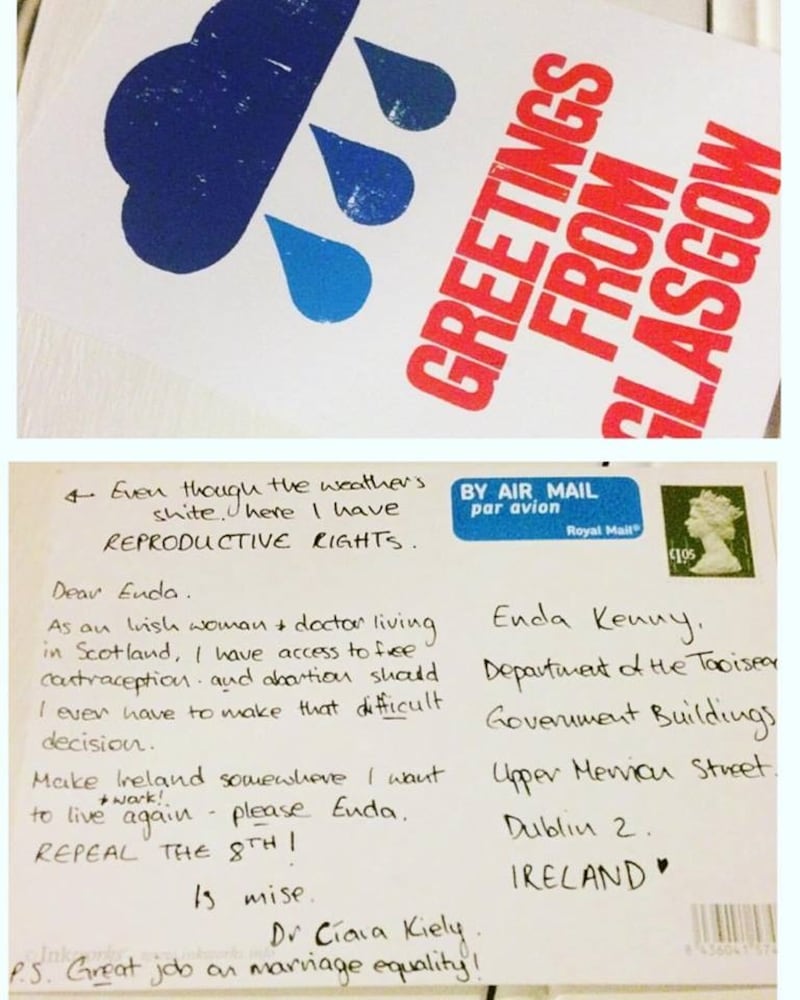 GREETINGS
FROM
GLASGOW
← Even though the weather's
shite, here I have
REPRODUCTIVE RIGHTS.
BY AIR MAIL
par avion
Royal Mail®
£1.05
Dear Enda.
As an Irish woman + doctor living
in Scotland, I have access to free
contraception. and abortion should
I ever have to make that difficult
decision.
Make Ireland somewhere I want
to live + work! again - please Enda.
REPEAL THE 8TH!
Is mise.
Dr Ciara Kiely.
P.S. Great job on marriage equality!
Enda Kenny,
Department of the Taoisea
Government Buildings
Upper Merrion Street.
Dublin 2.
IRELAND ♥
Inkworks